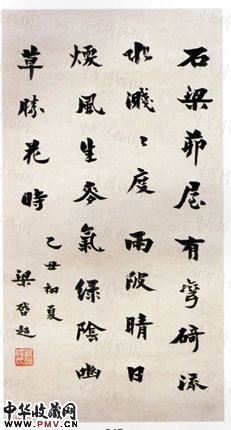 石梁茆屋有彎碕流
水濺〻度兩陂晴日
煖風生麥氣綠陰幽
草勝花時
乙丑初夏
梁啓超
中华收藏网
WWW.PMV.CN